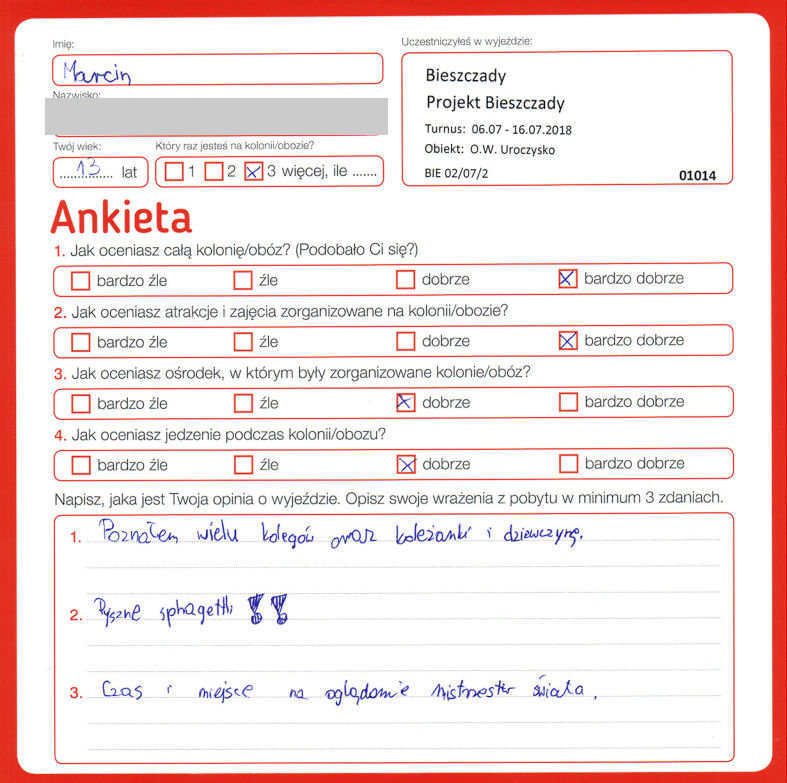 Imię:
Marcin
Nazwisko:
Twój wiek:
Który raz jesteś na kolonii/obozie?
13 lat
1 2 3 więcej, ile .......
Uczestniczyłeś w wyjeździe:
Bieszczady
Projekt Bieszczady
Turnus: 06.07 - 16.07.2018
Obiekt: O.W. Uroczysko
BIE 02/07/2 01014
Ankieta
1. Jak oceniasz całą kolonię/obóz? (Podobało Ci się?)
bardzo źle źle dobrze bardzo dobrze
2. Jak oceniasz atrakcje i zajęcia zorganizowane na kolonii/obozie?
bardzo źle źle dobrze bardzo dobrze
3. Jak oceniasz ośrodek, w którym były zorganizowane kolonie/obóz?
bardzo źle źle dobrze bardzo dobrze
4. Jak oceniasz jedzenie podczas kolonii/obozu?
bardzo źle źle dobrze bardzo dobrze
Napisz, jaka jest Twoja opinia o wyjeździe. Opisz swoje wrażenia z pobytu w minimum 3 zdaniach.
1. Poznałem wielu kolegów oraz koleżanki i dziewczynę.
2. Pyszne sphagetti !!
3. Czas i miejsce na oglądanie mistrzostw świata.